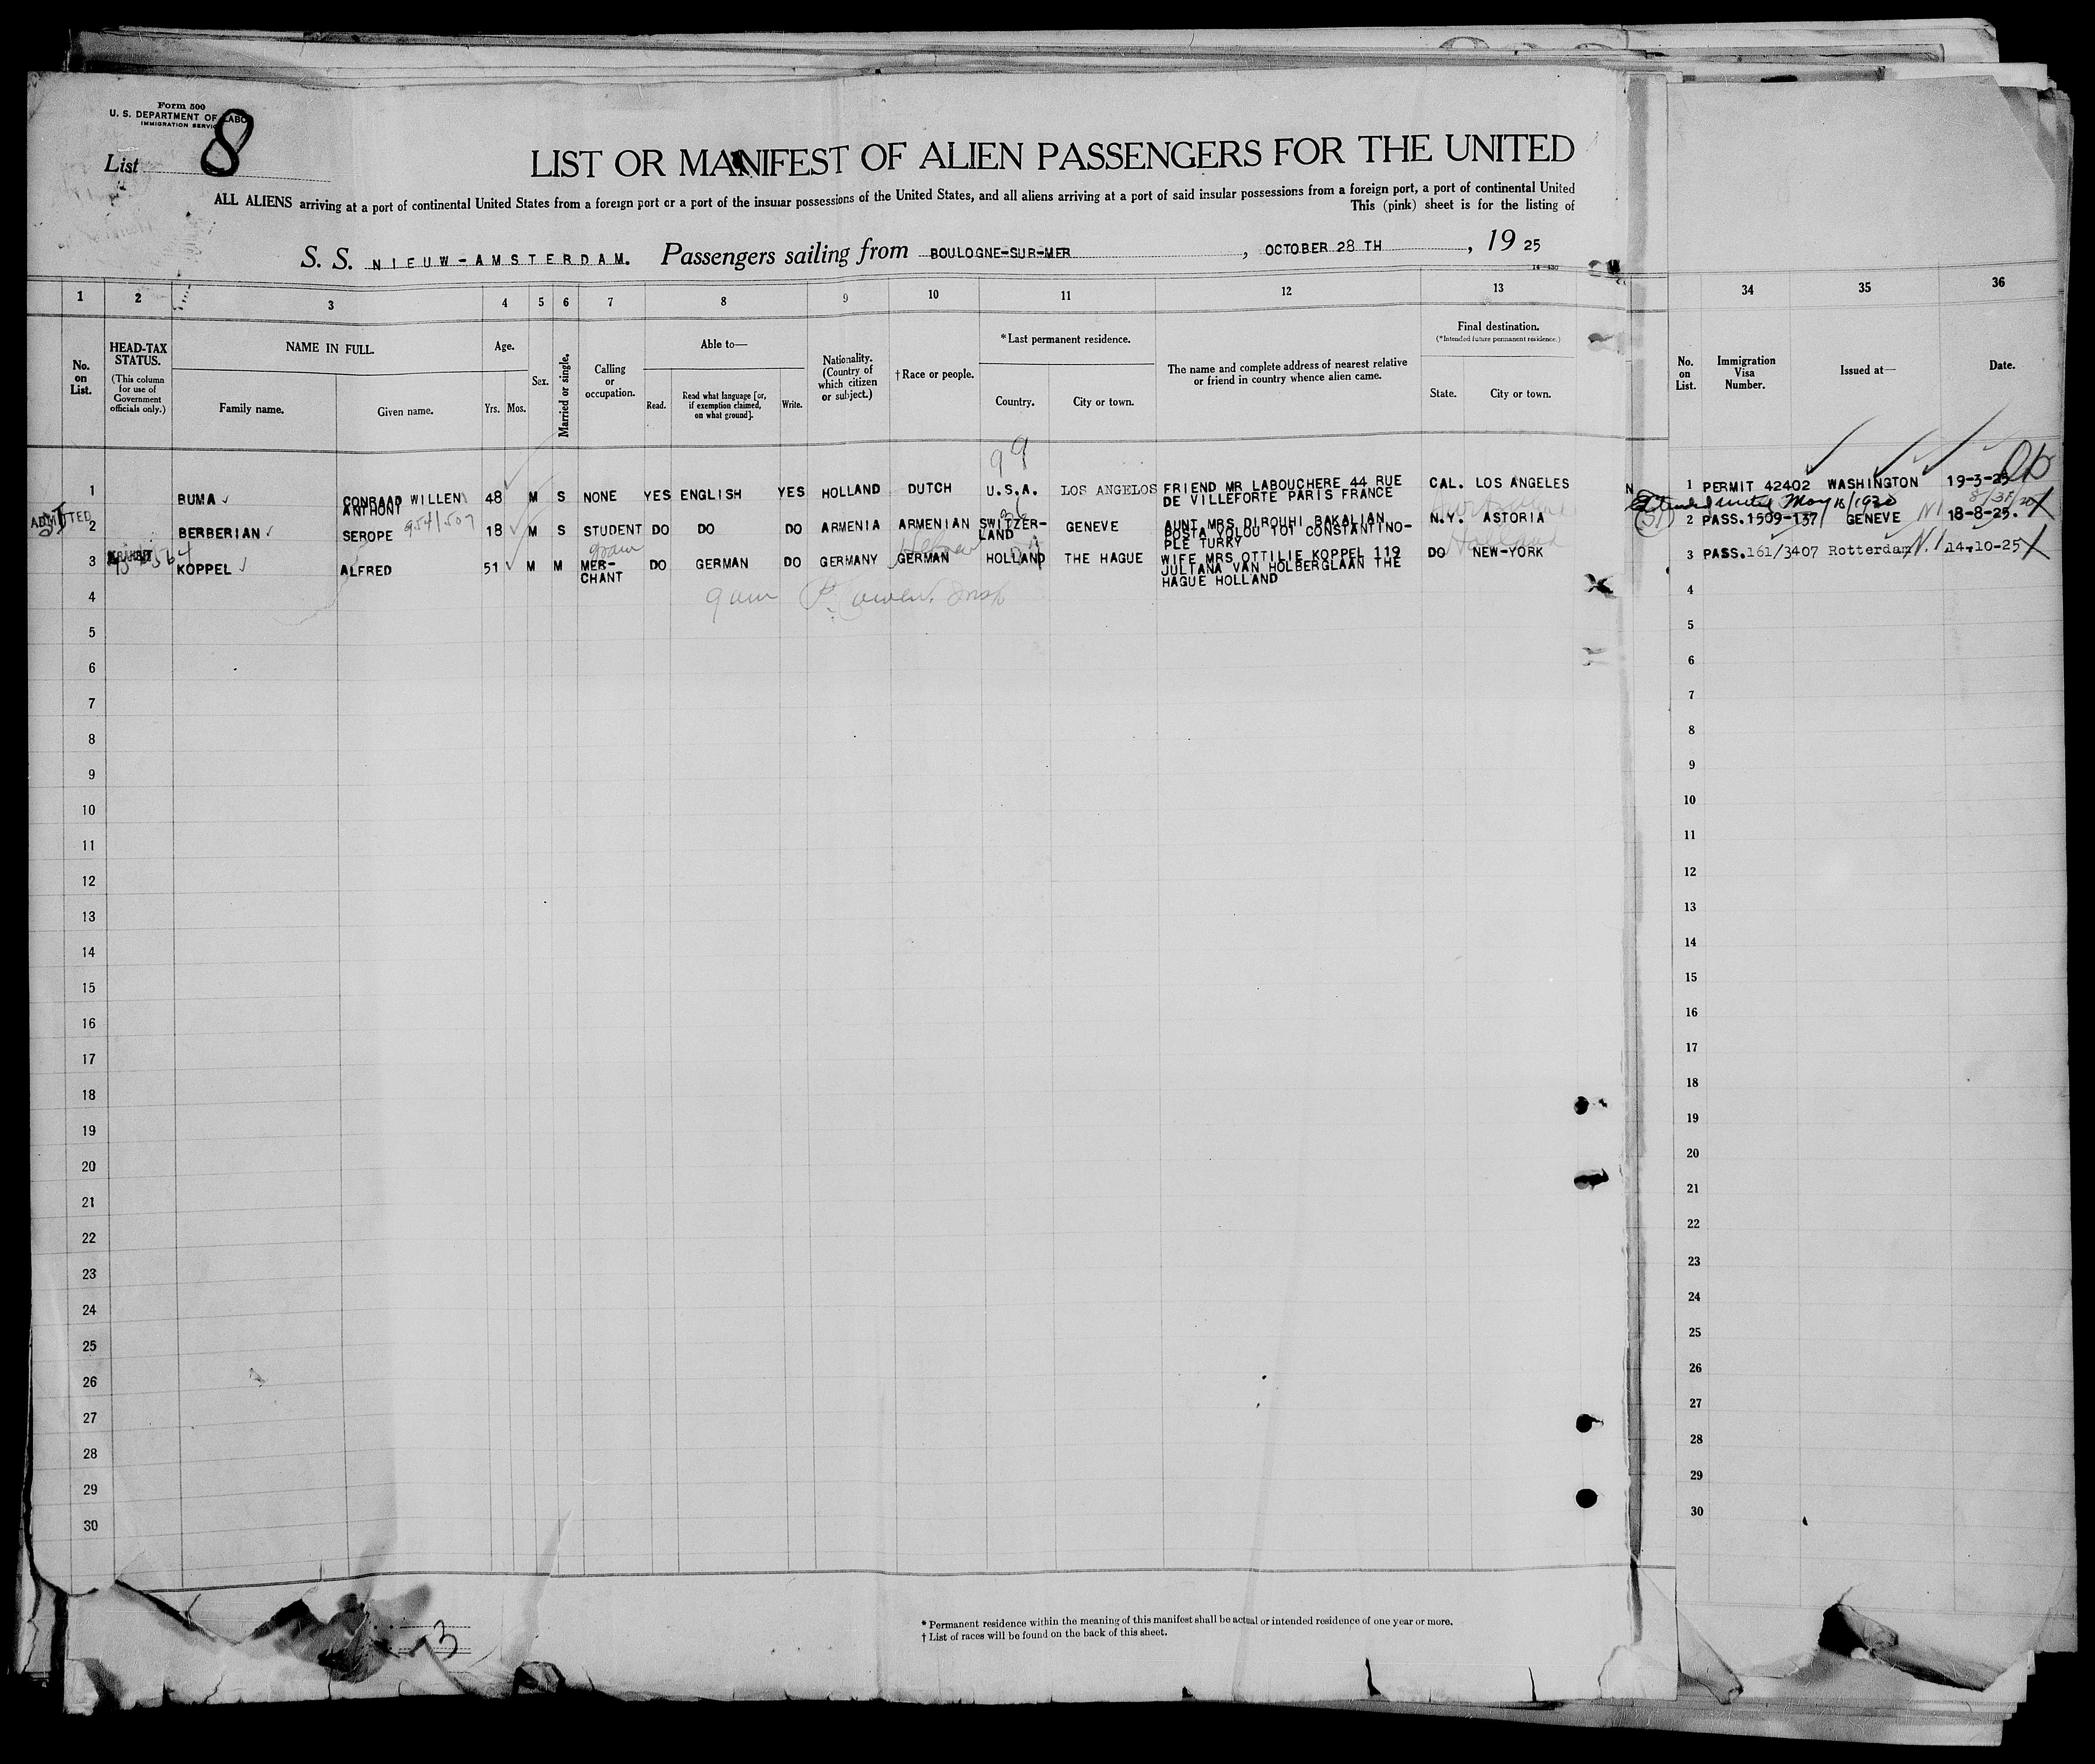 Form 500
U. S. DEPARTMENT OF LABOR
IMMIGRATION SERVICE
List 8
LIST OR MANIFEST OF ALIEN PASSENGERS FOR THE UNITED
ALL ALIENS arriving at a port of continental United States from a foreign port or a port of the insular possessions of the United States, and all aliens arriving at a port of said insular possessions from a foreign port, a port of continental United
This (pink) sheet is for the listing of
S. S. NIEUW-AMSTERDAM. Passengers sailing from BOULOGNE-SUR-MER, OCTOBER 28 TH, 19 25
14-430
1 2 3 4 5 6 7 8 9 10 11 12 13 34 35 36
No. on List.
HEAD-TAX STATUS.
(This column for use of Government officials only.)
NAME IN FULL.
Family name. Given name.
Age.
Yrs. Mos.
Sex.
Married or single.
Calling or occupation.
Able to—
Read. Read what language [or, if exemption claimed, on what ground]. Write.
Nationality. (Country of which citizen or subject.)
† Race or people.
*Last permanent residence.
Country. City or town.
The name and complete address of nearest relative or friend in country whence alien came.
Final destination.
(*Intended future permanent residence.)
State. City or town.
No. on List.
Immigration Visa Number.
Issued at—
Date.
99
1 BUMA CONRAAD WILLEM ANTHONY 48 M S NONE YES ENGLISH YES HOLLAND DUTCH U.S.A. LOS ANGELOS FRIEND MR LABOUCHERE 44 RUE DE VILLEFORTE PARIS FRANCE CAL. LOS ANGELES 1 PERMIT 42402 WASHINGTON 19-3-25
Extended until May 18/1926
ADMITTED
2 BERBERIAN SEROPE 954/507 18 M S STUDENT DO DO DO ARMENIA ARMENIAN SWITZERLAND 36 GENEVE AUNT MRS DIROUHI BAKALIAN POSTA YOLOU 101 CONSTANTINO-PLE TURKY N.Y. ASTORIA 2 PASS.1509-137 GENEVE 18-8-25.
3 KOPPEL ALFRED 51 M M MER-CHANT grain DO GERMAN DO GERMANY GERMAN Hebrew HOLLAND THE HAGUE WIFE MRS OTTILIE KOPPEL 119 JULIANA VAN HOLBERGLAAN THE HAGUE HOLLAND DO NEW-YORK Holland 3 PASS.161/3407 Rotterdam 14-10-25
4 4
5 5
6 6
7 7
8 8
9 9
10 10
11 11
12 12
13 13
14 14
15 15
16 16
17 17
18 18
19 19
20 20
21 21
22 22
23 23
24 24
25 25
26 26
27 27
28 28
29 29
30 30
3
* Permanent residence within the meaning of this manifest shall be actual or intended residence of one year or more.
† List of races will be found on the back of this sheet.